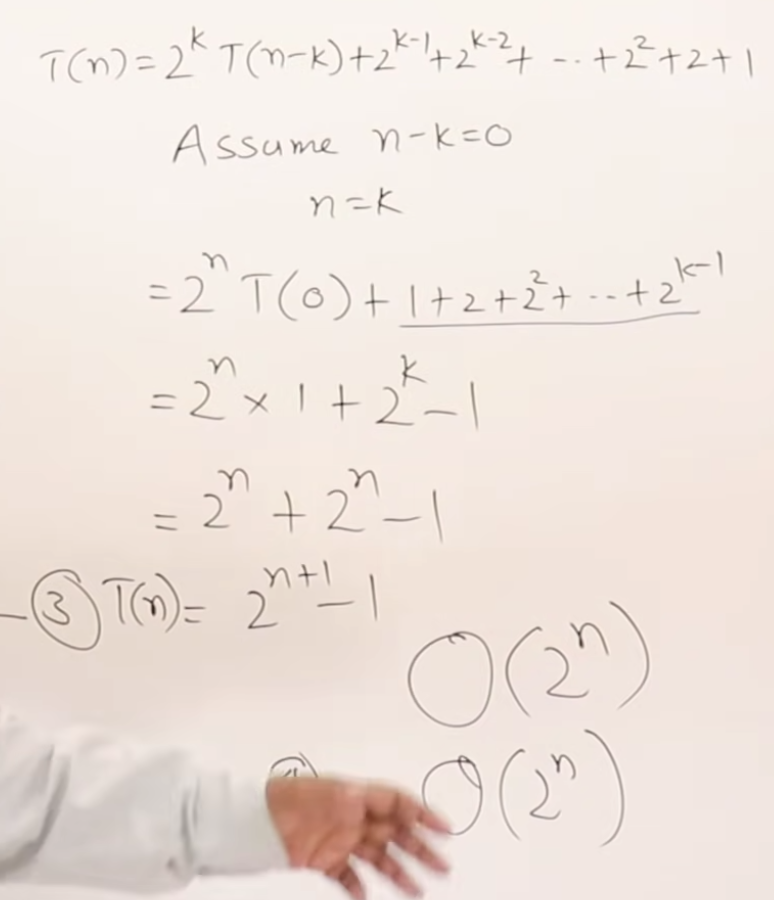 T(n)=2^k T(n-k)+2^{k-1}+2^{k-2}+ -.. +2^2+2+1
Assume n-k=0
n=k
=2^n T(0)+ 1+2+2^2+ -..+2^{k-1}
=2^n × 1 + 2^k -1
= 2^n + 2^n -1
-③ T(n)= 2^{n+1} -1
O(2^n)
O(2^n)